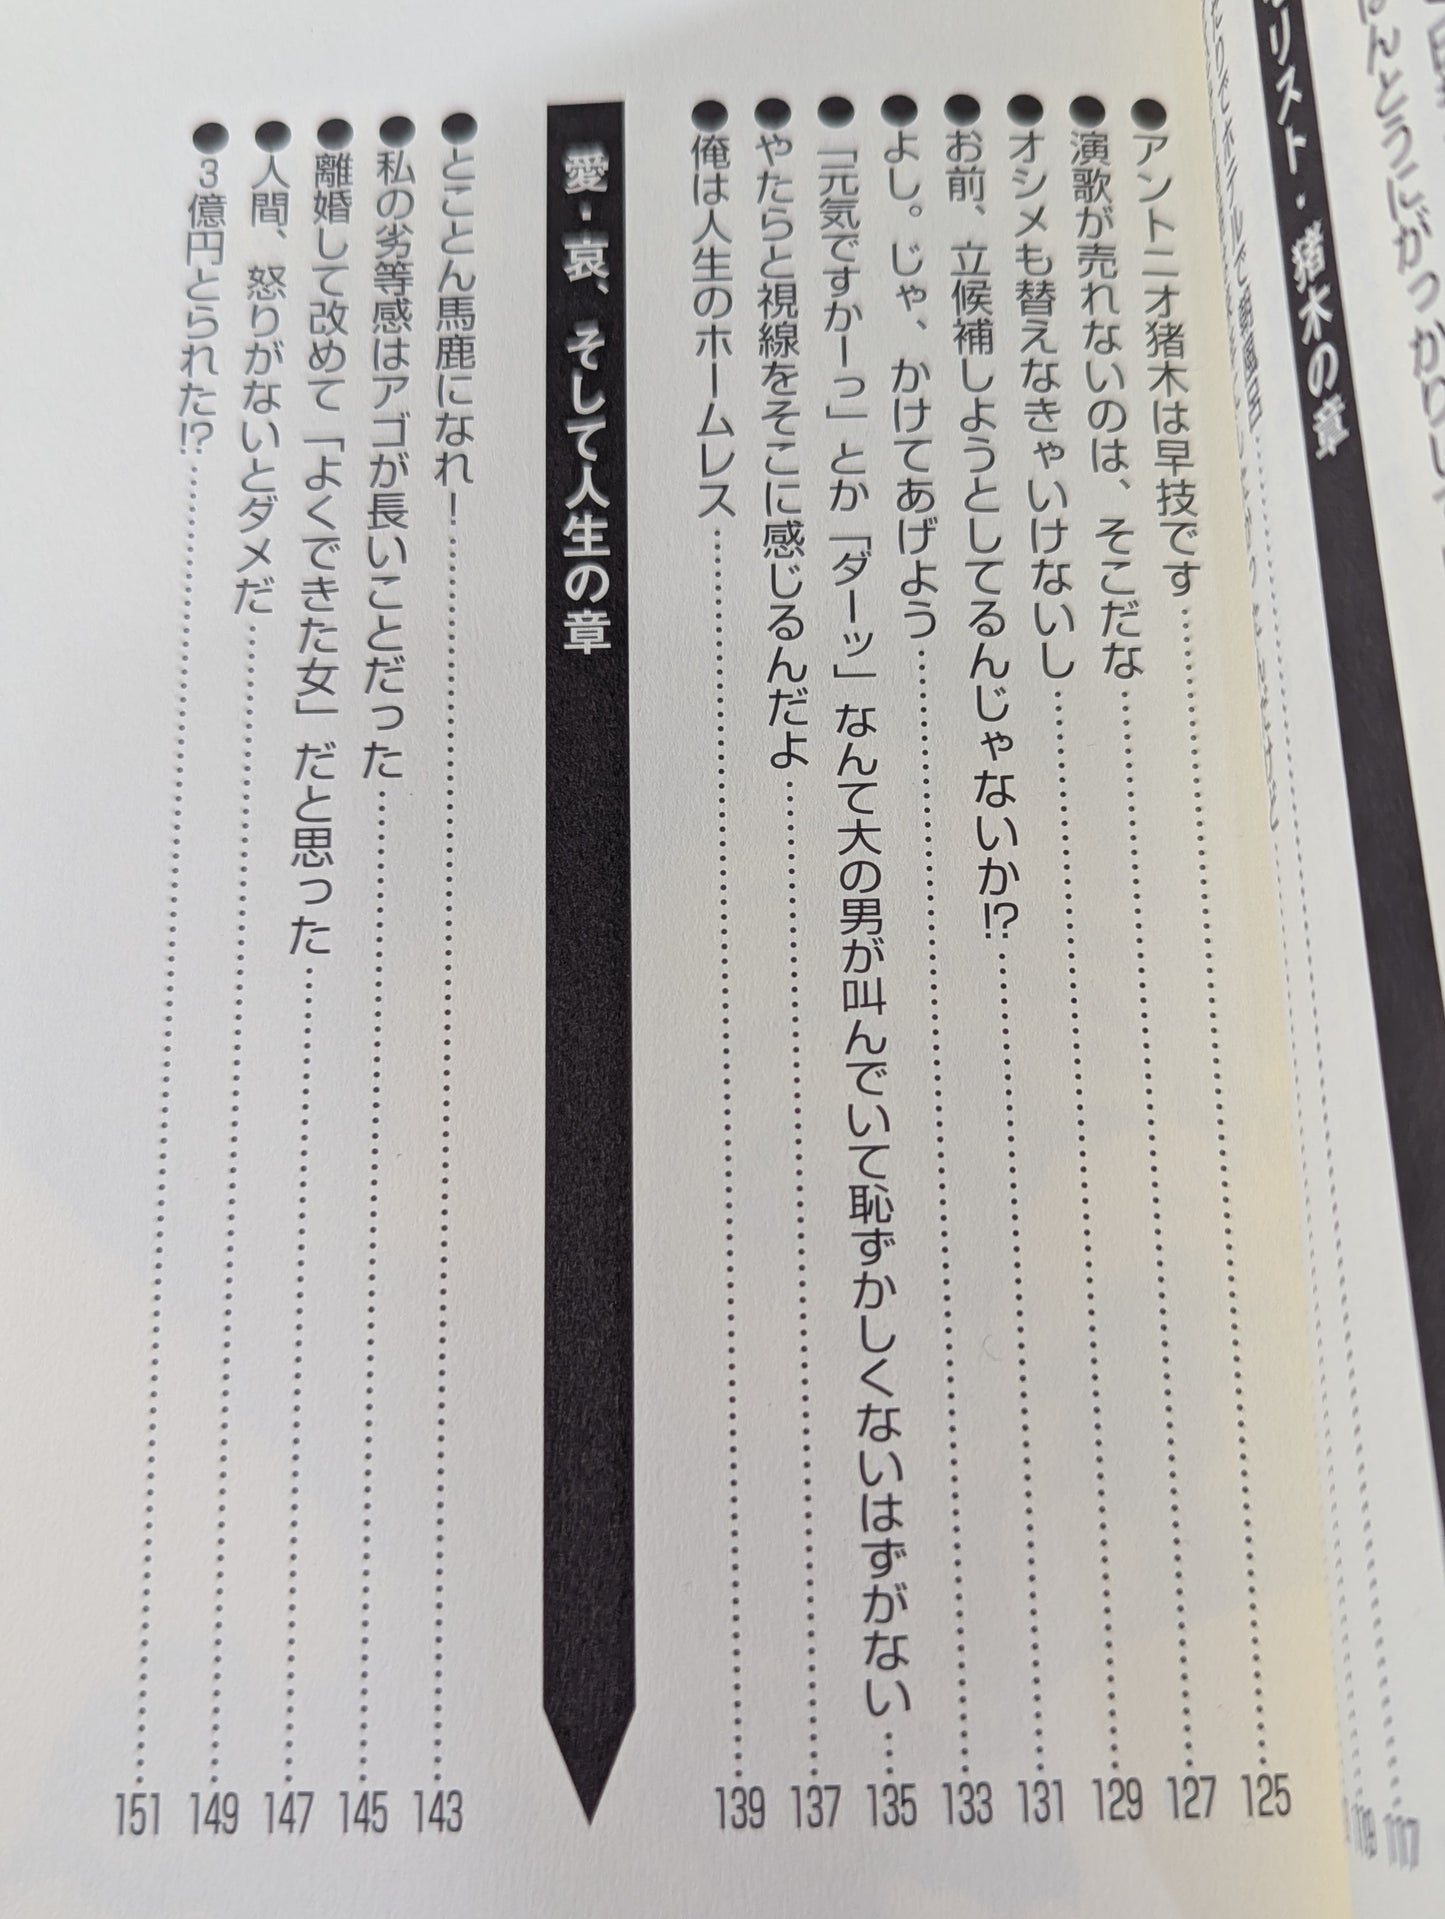 リスト・猪木の章
117
119
●アントニオ猪木は早技です 125
●演歌が売れないのは、そこだな 127
●オシメも替えなきゃいけないし 129
●お前、立候補しようとしてるんじゃないか!? 131
●よし。じゃ、かけてあげよう 133
●「元気ですかーっ」とか「ダーッ」なんて大の男が叫んでいて恥ずかしくないはずがない 135
●やたらと視線をそこに感じるんだよ 137
●俺は人生のホームレス 139
愛・哀、そして人生の章
●とことん馬鹿になれ! 143
●私の劣等感はアゴが長いことだった 145
●離婚して改めて「よくできた女」だと思った 147
●人間、怒りがないとダメだ 149
●3億円とられた!? 151